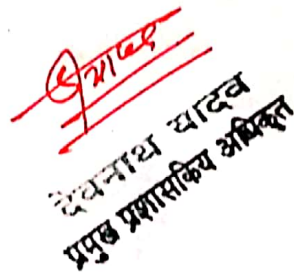 देवनाथ यादव
प्रमुख प्रशासकिय अधिकृत